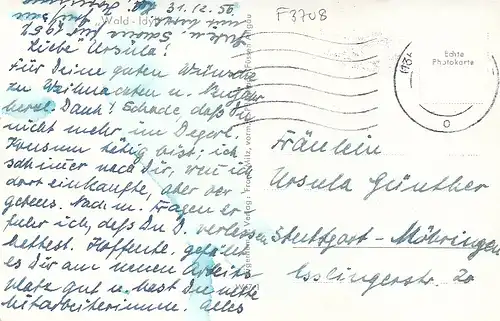 F3708
31.12.56.
"Wald-Idy
Liebe Ursula!
Für Deine guten Wünsche
zu Weihnachten u. Neujahr
herzl. Dank! Schade, daß Du
nicht mehr im Degerl.
Konsum tätig bist; ich
sah immer nach Dir, wenn ich
dort einkaufte, aber ver-
gebens. Nach m. Fragen er-
fuhr ich, daß Du D. verlassen
hattest. Hoffentl. gefällt
es Dir am neuen Arbeits-
platz gut u. hast Du nette
Mitarbeiterinnen. Alles
Echte
Photokarte
Fräulein
Ursula Günther
Stuttgart-Möhringen
Esslingerstr. 20